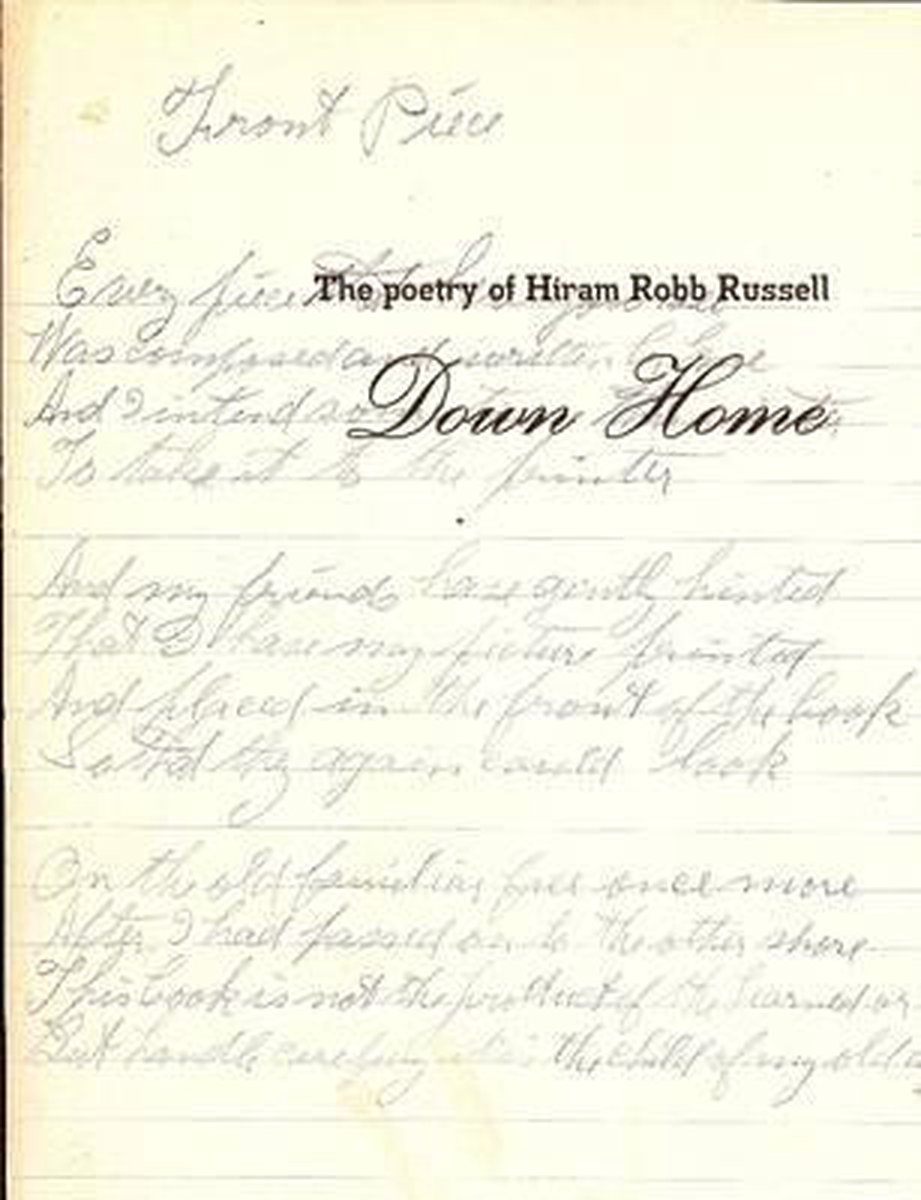 Front Piece
Every piece that
The poetry of Hiram Robb Russell
Was composed and written
Down Home
And I intend
To take it to the printer
And my friends have gently hinted
That I have my picture printed
And placed in the front of the book
So that they again could look
On the old familiar face once more
After I had passed on to the other shore
This book is not the product of the learned or
But handle carefully the child of my old